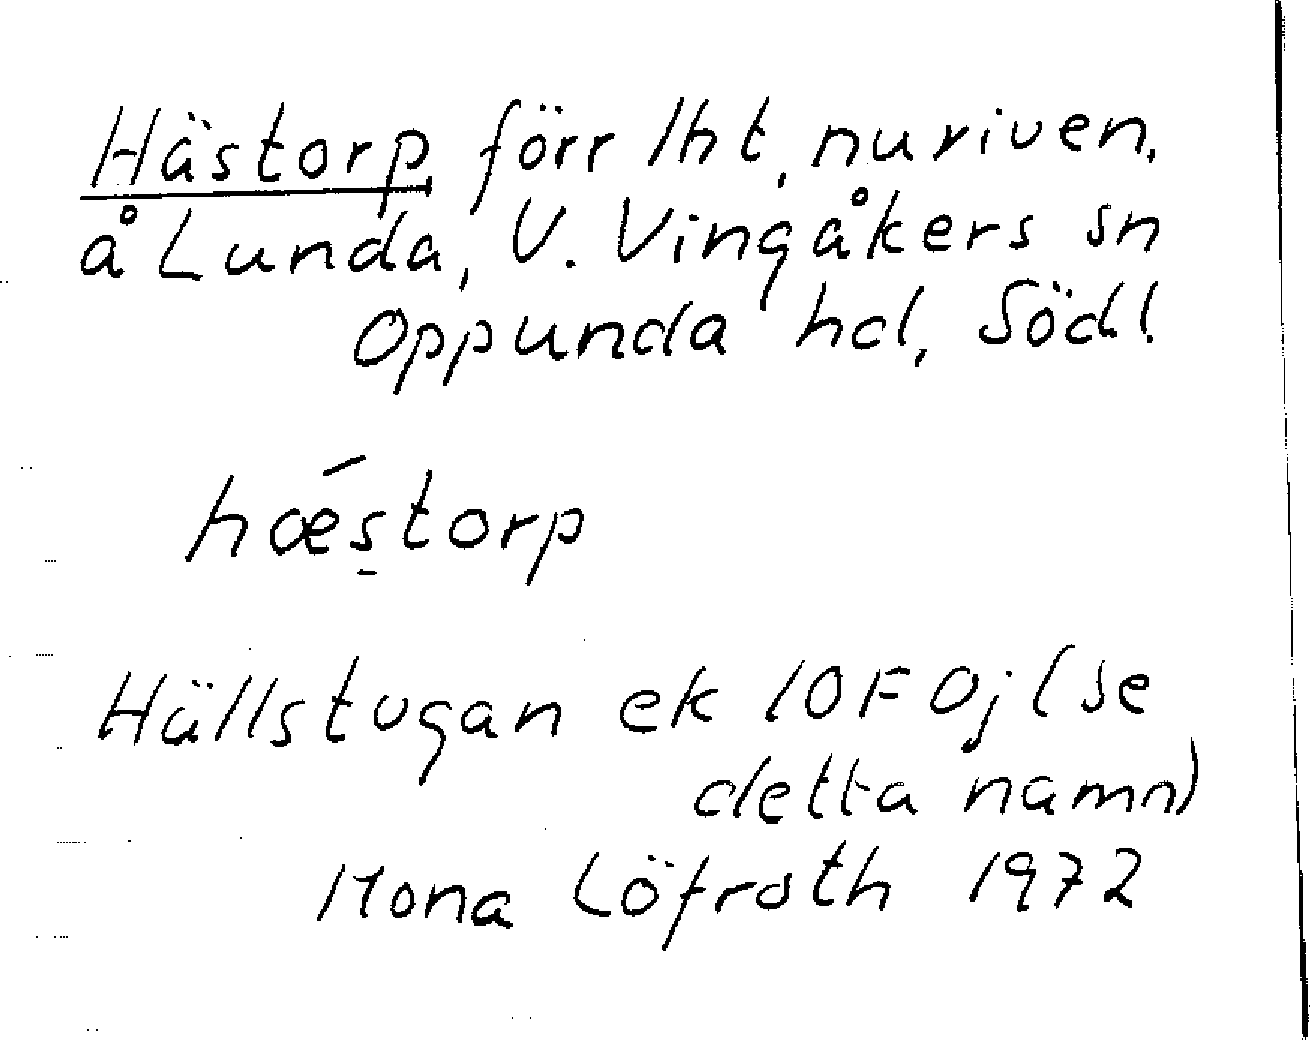 Hästorp, förr lht, nu riven,
å Lunda, V. Vingåkers sn
Oppunda hd, Södl
hǽstorp
Hällstugan ek 10F 0j (se
detta namn)
Mona Löfroth 1972